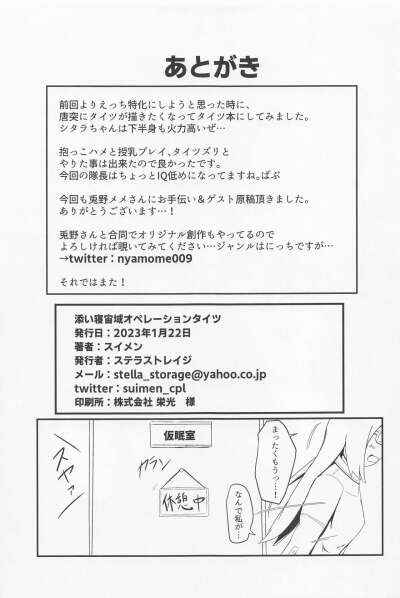 あとがき
前回よりえっち特化にしようと思った時に、
唐突にタイツが描きたくなってタイツ本にしてみました。
シタラちゃんは下半身も火力高いぜ…
抱っこハメと授乳プレイ、タイツズリと
やりたい事は出来たので良かったです。
今回の隊長はちょっとIQ低めになってますね。ばぶ
今回も兎野メメさんにお手伝い＆ゲスト原稿頂きました。
ありがとうございます…！
兎野さんと合同でオリジナル創作もやってるので
よろしければ覗いてみてください…ジャンルはにっちですが…
→twitter：nyamome009
それではまた！
添い寝宙域オペレーションタイツ
発行日：2023年1月22日
著者：スイメン
発行者：ステラストレイジ
メール：stella_storage@yahoo.co.jp
twitter：suimen_cpl
印刷所：株式会社 栄光　様
まったくもうっ…！
なんで私が…
仮眠室
カラン
休憩中
スヤァ